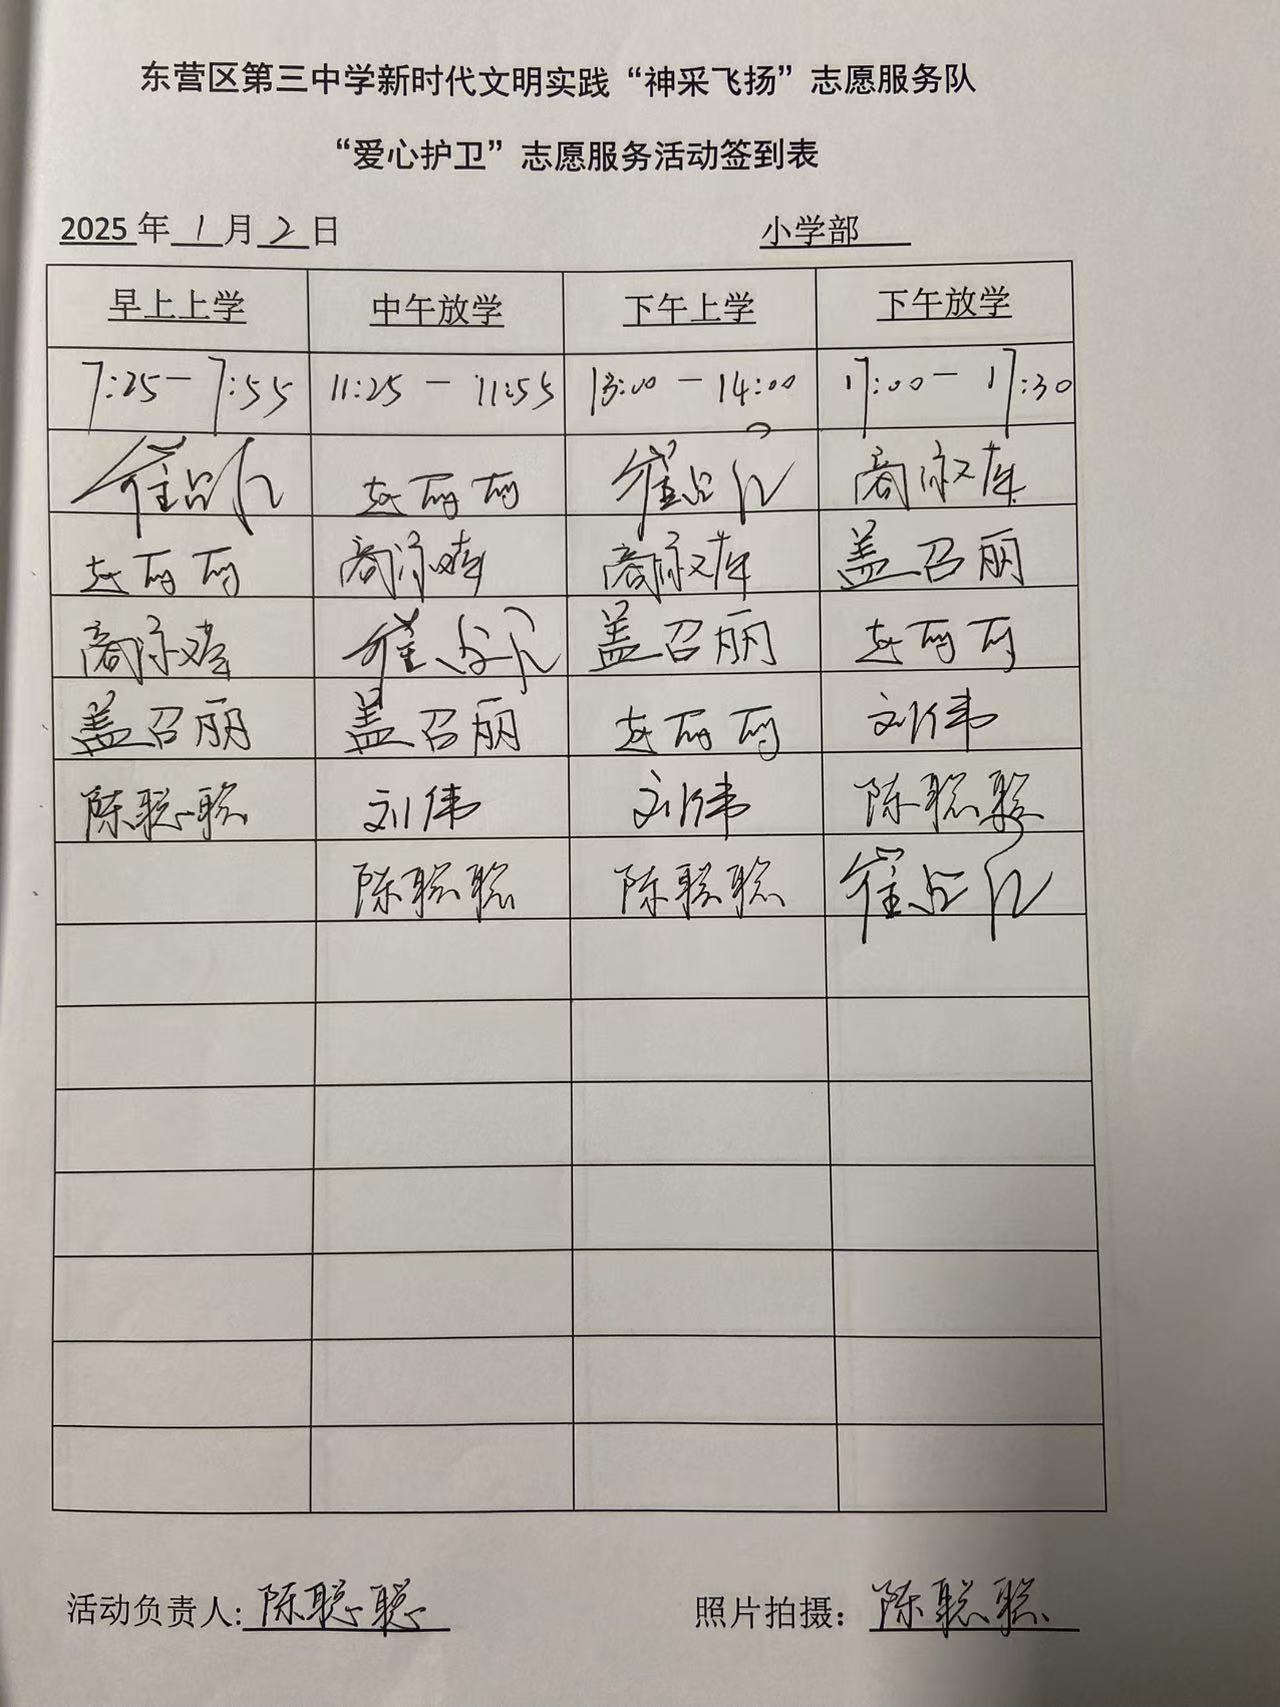 东营区第三中学新时代文明实践“神采飞扬”志愿服务队
“爱心护卫”志愿服务活动签到表
2025年1月2日 小学部
早上上学 中午放学 下午上学 下午放学
7:25-7:55 11:25-11:55 13:00-14:00 17:00-17:30
崔 赵丽丽 崔 商
赵丽丽 商 商 盖召丽
商 崔 盖召丽 赵丽丽
盖召丽 盖召丽 赵丽丽 刘伟
陈聪聪 刘伟 刘伟 陈聪聪
陈聪聪 陈聪聪 崔
活动负责人:陈聪聪 照片拍摄：陈聪聪